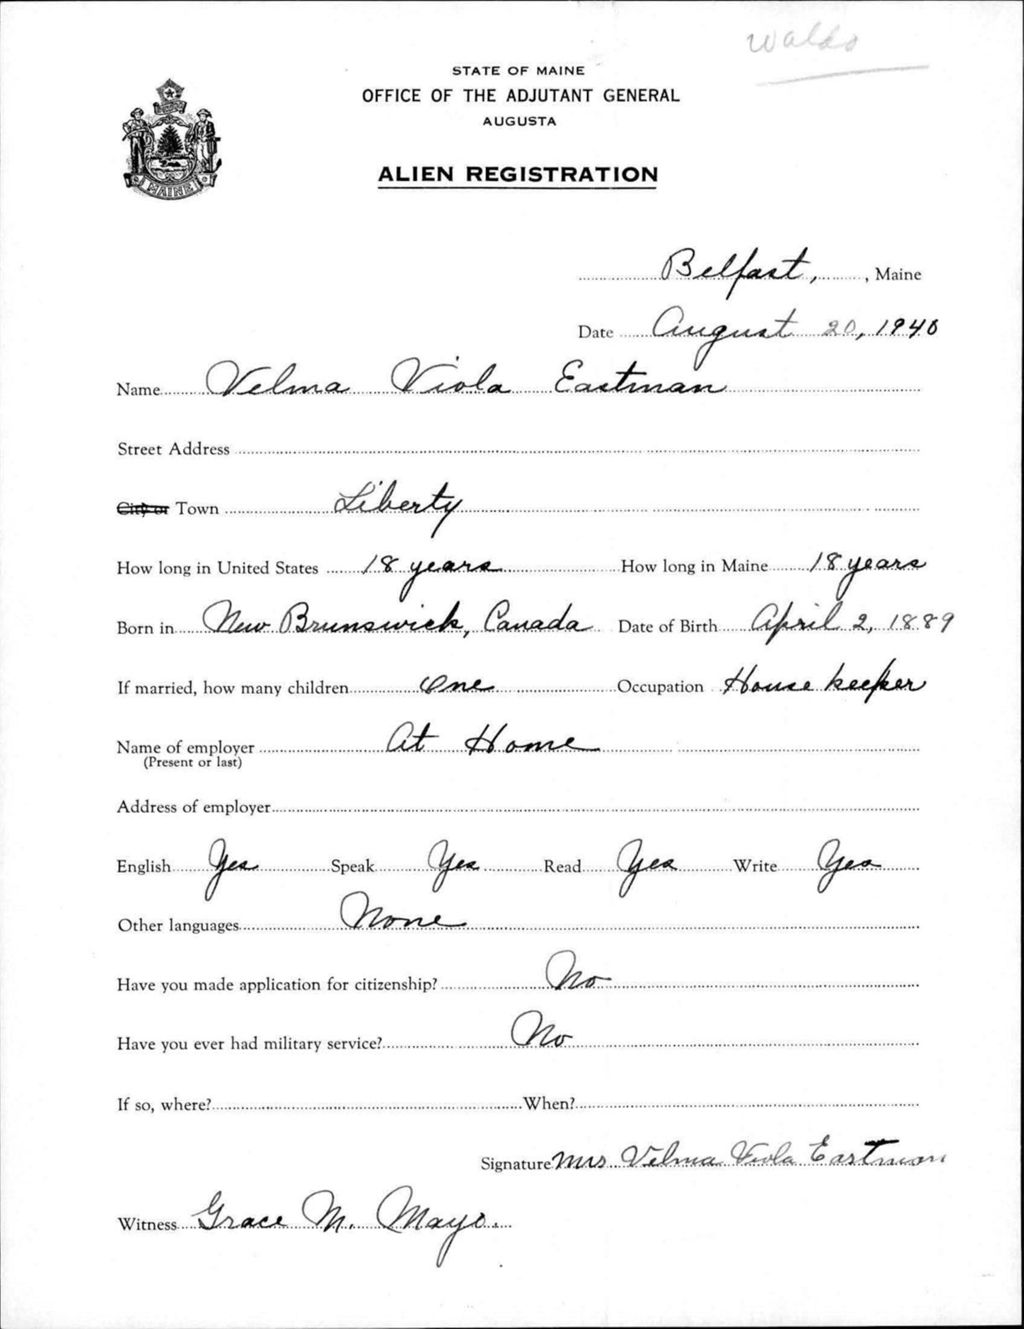 Waldo
STATE OF MAINE
OFFICE OF THE ADJUTANT GENERAL
AUGUSTA
ALIEN REGISTRATION
MAINE
Belfast, , Maine
Date August 20, 1940
Name Velma Viola Eastman
Street Address
City or Town Liberty
How long in United States 18 years How long in Maine 18 years
Born in New Brunswick, Canada Date of Birth April 2, 1889
If married, how many children One Occupation House keeper
Name of employer At Home
(Present or last)
Address of employer
English Yes Speak Yes Read Yes Write Yes
Other languages None
Have you made application for citizenship? No
Have you ever had military service? No
If so, where? When?
Signature Mrs Velma Viola Eastman
Witness Grace M. Mayo.